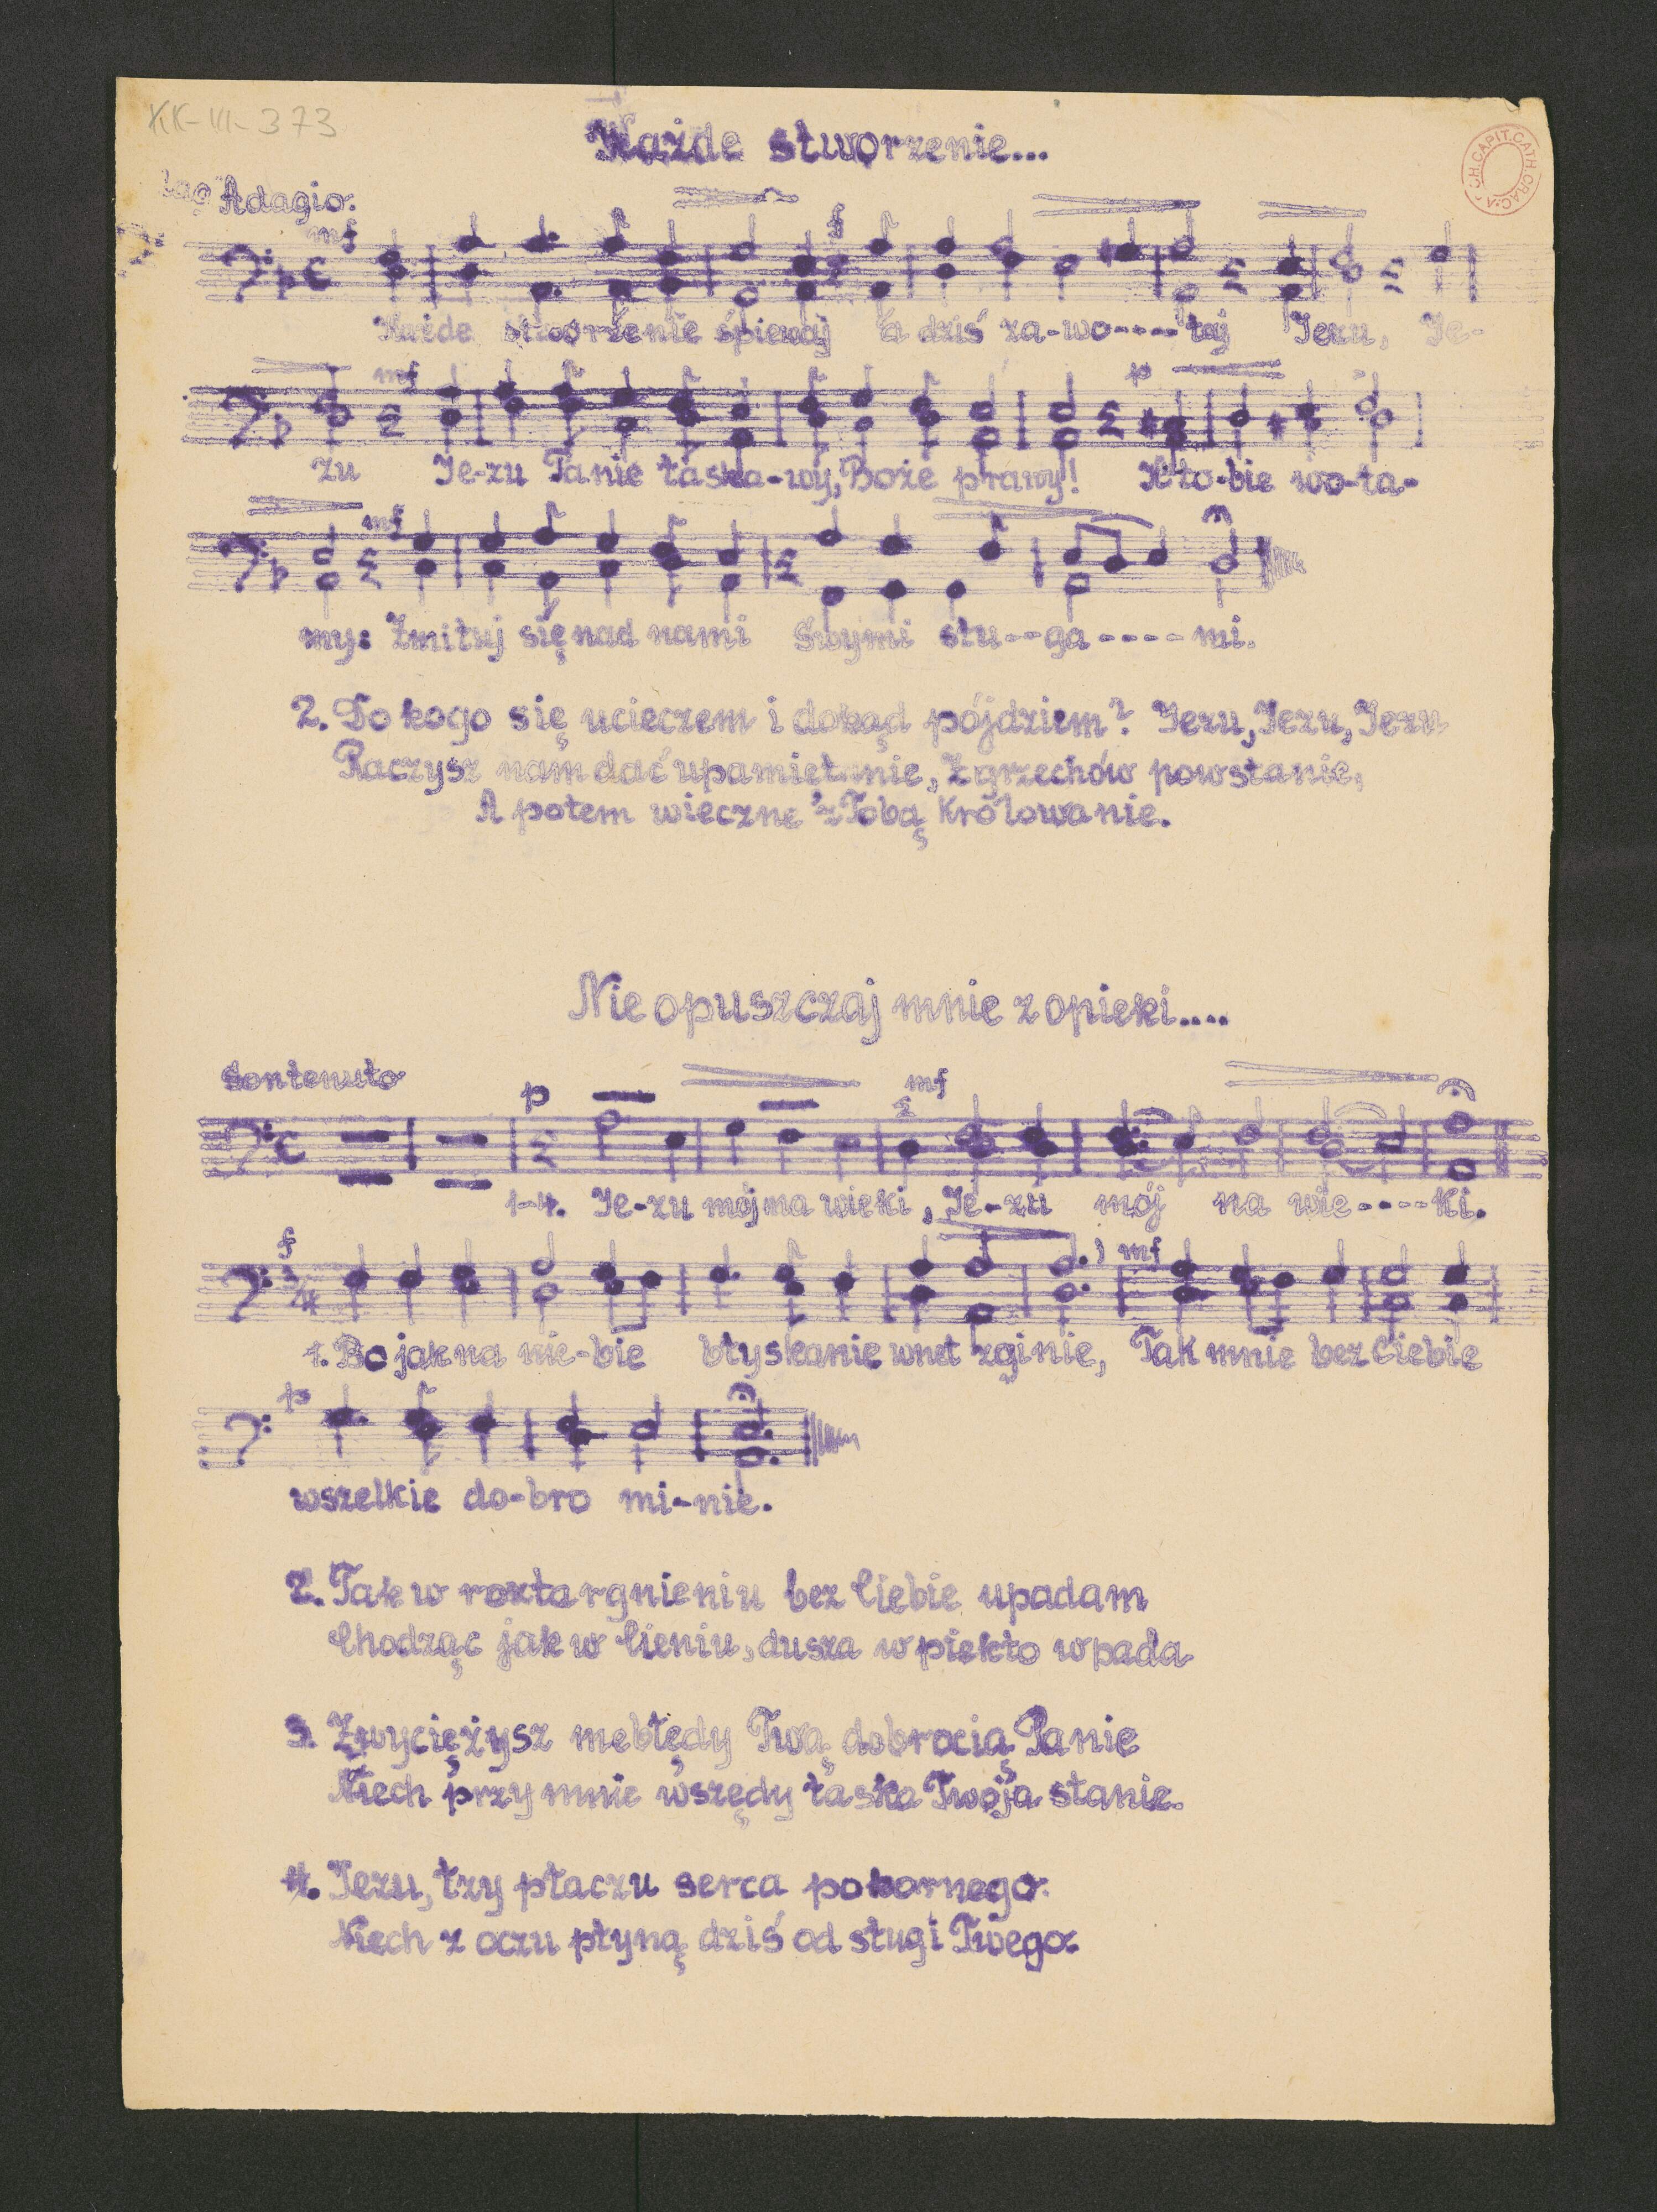 KK-VI-373
Każde stworzenie...
ARCH.CAPIT.CATH.CRAC.
Adagio.
mf f
Każde stworzenie śpiewaj a dziś za-wo----łaj Jezu, Je-
mf p
zu Je-zu Panie łaska-wy, Boże prawy! K'to-bie wo-ła-
mf
my: Zmiłuj się nad nami Swymi słu--ga----mi.
2. Do kogo się ucieczem i dokąd pójdziem? Jezu, Jezu, Jezu
Raczysz nam dać upamietanie, Z grzechów powstanie,
A potem wieczne z Tobą królowanie.
Nie opuszczaj mnie z opieki....
Sontenuto
p mf
1-4. Je-zu mój na wieki, Je-zu mój na wie----ki.
f mf
1. Bo jak na nie-bie błyskanie wnet zginie, Tak mnie bez Ciebie
p
wszelkie do-bro mi-nie.
2. Tak w roztargnieniu bez Ciebie upadam
Chodząc jak w Cieniu, dusza w piekło wpada
3. Zwyciężysz me błędy Twą dobrocią Panie
Niech przy mnie wszędy łaska Twoja stanie.
4. Jezu, łzy płaczu serca pokornego.
Niech z oczu płyną dziś od sługi Twego.